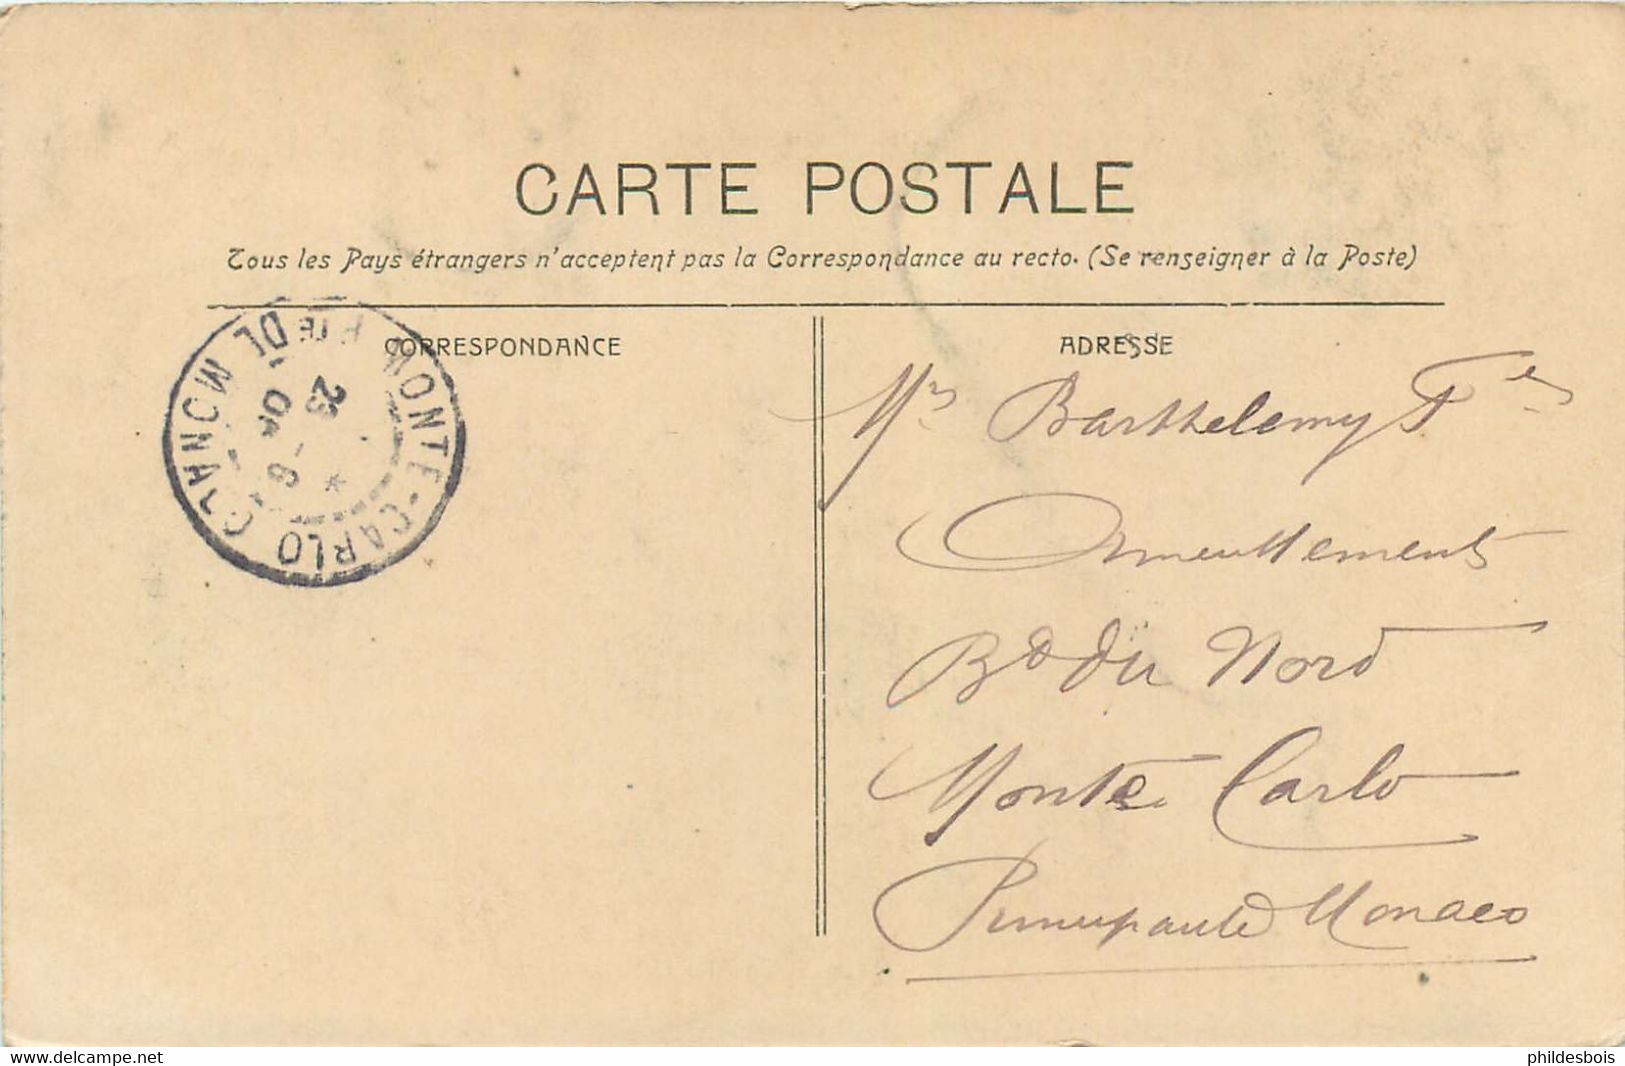 CARTE POSTALE
Tous les Pays étrangers n'acceptent pas la Correspondance au recto. (Se renseigner à la Poste)
CORRESPONDANCE
ADRESSE
MONTE-CARLO
PTÉ DE MONACO
23
-6
Mrs Barthelemy Fres
Ameublements
Bd du Nord
Monte Carlo
Principauté Monaco
www.delcampe.net
phildesbois